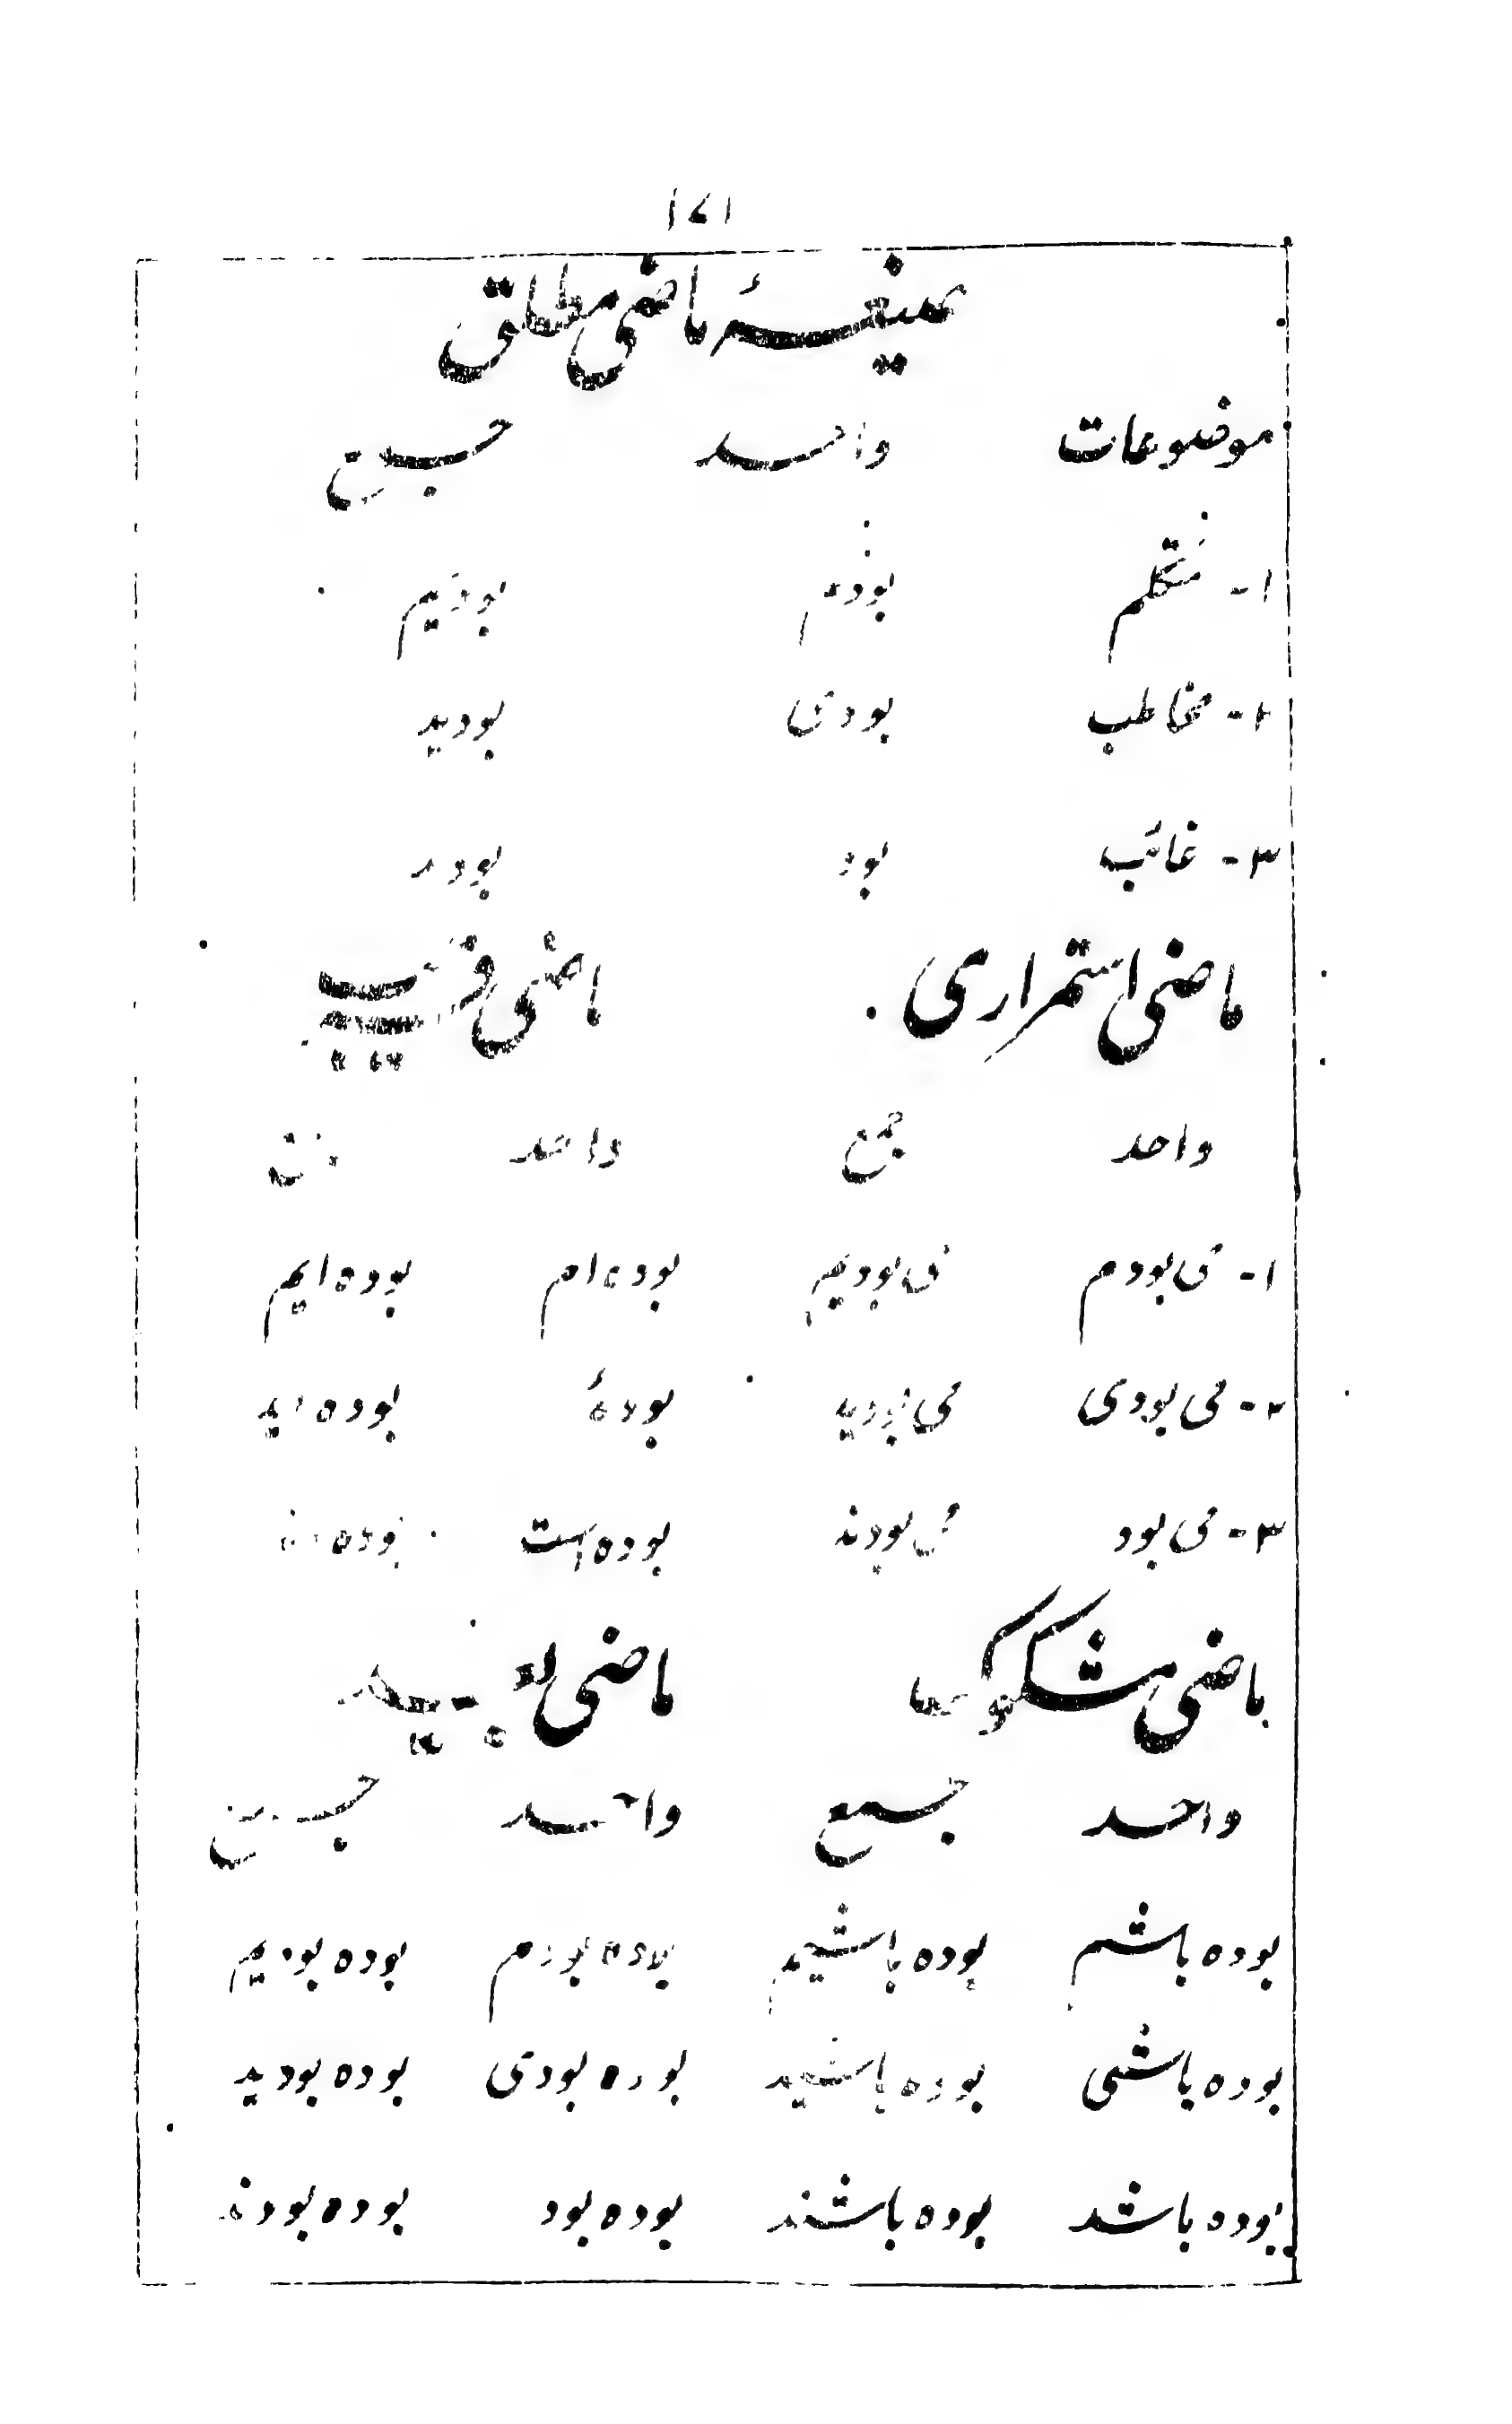 ۱۷۱
صیغۂ ماضی مطلق
موضوعات واحد جمع
۱- متکلم بودم بودیم
۲- مخاطب بودی بودید
۳- غائب بود بودند
ماضی استمراری ماضی قریب
واحد جمع واحد جمع
۱- می بودم می بودیم بوده ام بوده ایم
۲- می بودی می بودید بودۂ بوده اید
۳- می بود می بودند بوده است بوده اند
ماضی مشکوک ماضی بعید
واحد جمع واحد جمع
بوده باشم بوده باشیم بوده بودم بوده بودیم
بوده باشی بوده باشید بوده بودی بوده بودید
بوده باشد بوده باشند بوده بود بوده بودند